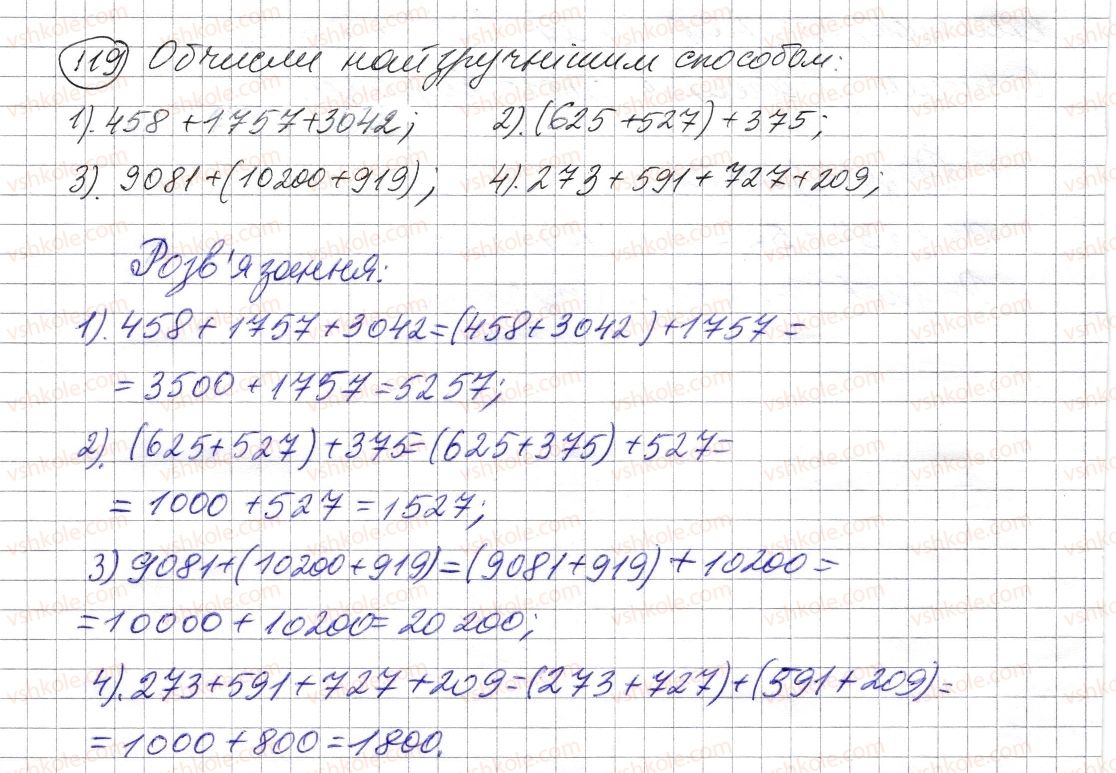 119 Обчисли найзручнішим способом:
1). 458 + 1757 + 3042; 2). (625 + 527) + 375;
3). 9081 + (10200 + 919); 4). 273 + 591 + 727 + 209;
Розв'язання:
1). 458 + 1757 + 3042 = (458 + 3042) + 1757 =
= 3500 + 1757 = 5257;
2). (625 + 527) + 375 = (625 + 375) + 527 =
= 1000 + 527 = 1527;
3) 9081 + (10200 + 919) = (9081 + 919) + 10200 =
= 10000 + 10200 = 20 200;
4). 273 + 591 + 727 + 209 = (273 + 727) + (591 + 209) =
= 1000 + 800 = 1800.
vshkole.com